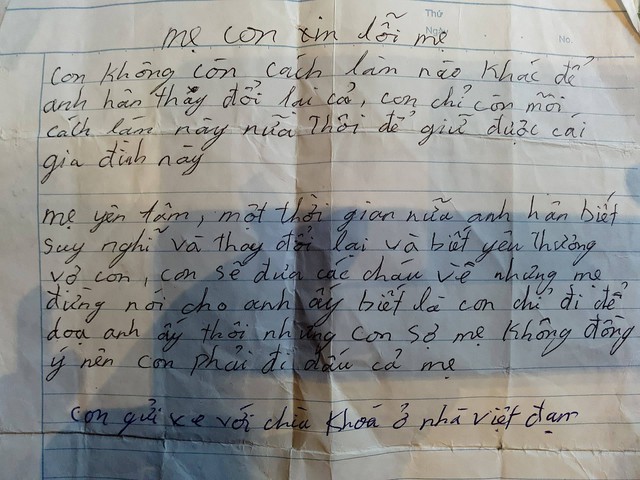 Thứ
Ngày
No.
mẹ con xin lỗi mẹ
con không còn cách làm nào khác để
anh hân thay đổi lại cả, con chỉ còn mỗi
cách làm này nữa thôi để giữ được cái
gia đình này
mẹ yên tâm, một thời gian nữa anh hân biết
suy nghĩ và thay đổi lại và biết yêu thương
vợ con, con sẽ đưa các cháu về nhưng mẹ
đừng nói cho anh ấy biết là con chỉ đi để
doạ anh ấy thôi nhưng con sợ mẹ không đồng
ý nên con phải đi dấu cả mẹ
con gửi xe với chìa khoá ở nhà việt đạm